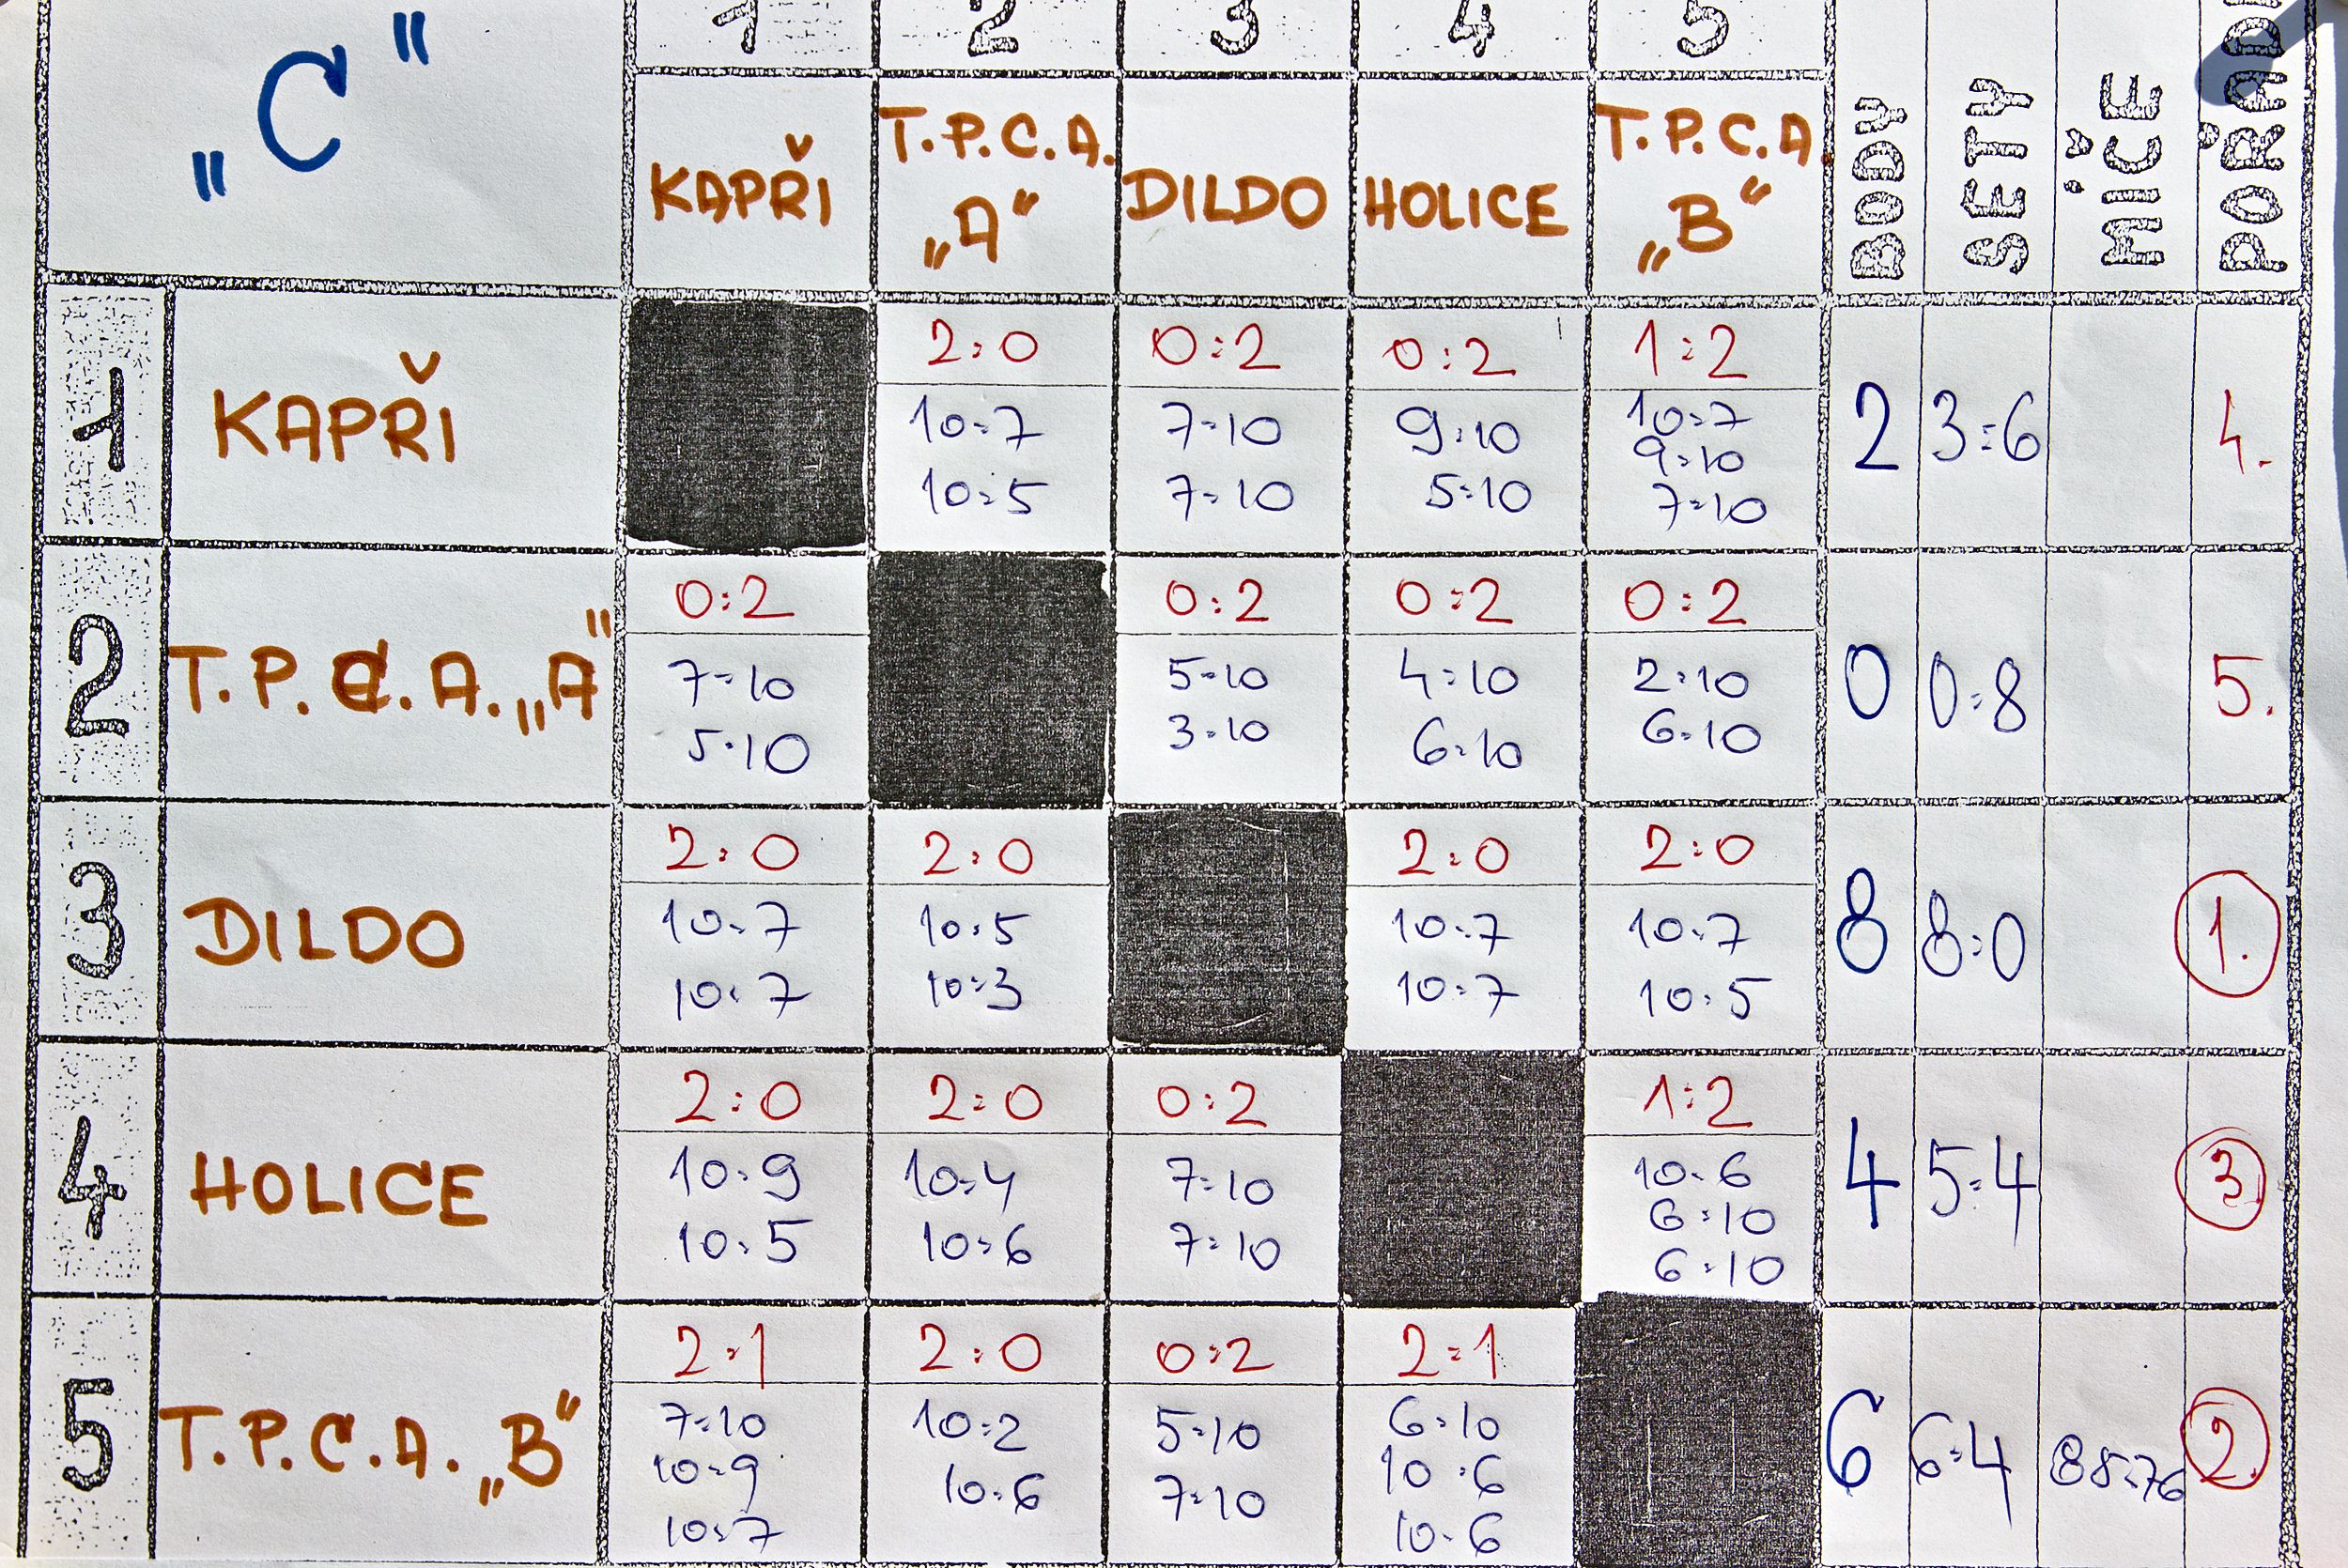 „C"
1 2 3 4 5
KAPŘI T.P.C.A. „A" DILDO HOLICE T.P.C.A. „B" BODY SETY MÍČE
1 KAPŘI 2:0 0:2 0:2 1:2 2 3:6 4.
10:7 7:10 9:10 10:7
9:10
10:5 7:10 5:10 7:10
2 T.P.C.A. „A" 0:2 0:2 0:2 0:2 0 0:8 5.
7:10 5:10 4:10 2:10
5:10 3:10 6:10 6:10
3 DILDO 2:0 2:0 2:0 2:0 8 8:0 1.
10:7 10:5 10:7 10:7
10:7 10:3 10:7 10:5
4 HOLICE 2:0 2:0 0:2 1:2 4 5:4 3.
10:9 10:4 7:10 10:6
6:10
10:5 10:6 7:10 6:10
5 T.P.C.A. „B" 2:1 2:0 0:2 2:1 6 6:4 88:76 2.
7:10 10:2 5:10 6:10
10:9 10:6 7:10 10:6
10:7 10:6